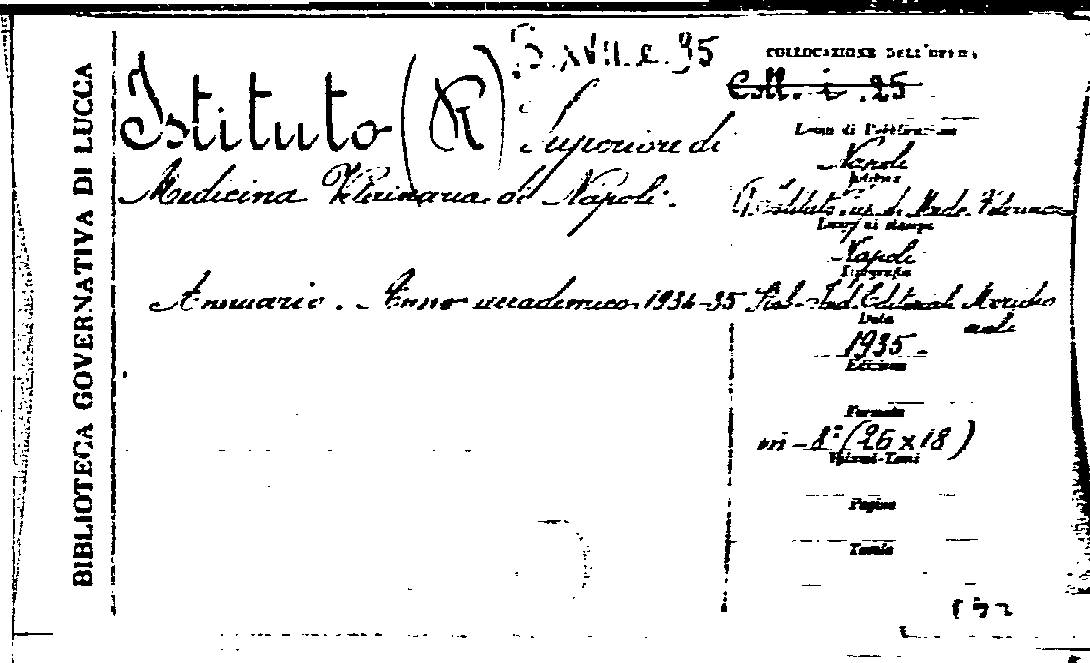 BIBLIOTECA GOVERNATIVA DI LUCCA
B. XVII. e. 95
Istituto (R) Superiore di
Medicina Veterinaria di Napoli.
Annuario. Anno accademico 1934-35
COLLOCAZIONE DELL'OPERA
Coll. i. 25
Luogo di Pubblicazione
Napoli
Editore
R. Istituto sup. di Med. Veterinaria
Luogo di stampa
Napoli
Tipografia
Stab. Ind. Editoriale Meridio
nale
Data
1935.
Edizione
Formato
in-8° (26 x 18)
Volumi-Tomi
Pagine
Tavole